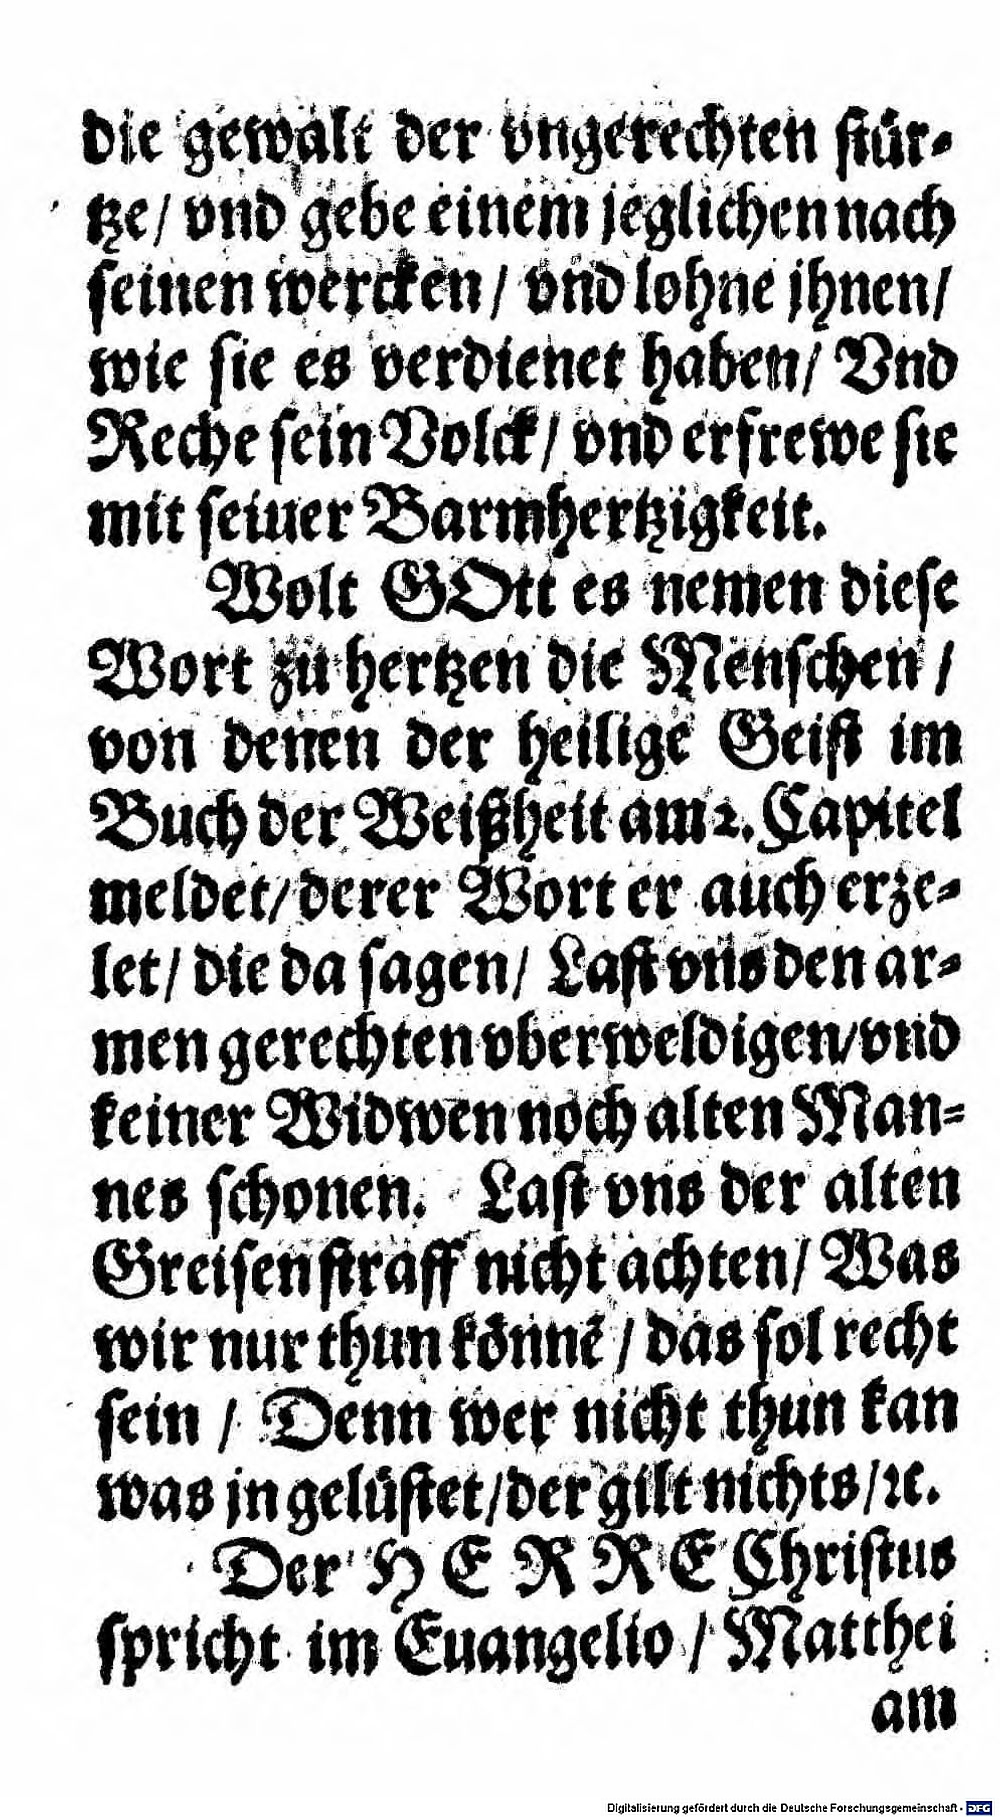 die gewalt der vngerechten stür⸗
tze/ vnd gebe einem jeglichen nach
seinen wercken/ vnd lohne jhnen/
wie sie es verdienet haben/ Vnd
Reche sein Volck/ vnd erfrewe sie
mit seiner Barmhertzigkeit.
Wolt GOtt es nemen diese
Wort zu hertzen die Menschen/
von denen der heilige Geist im
Buch der Weißheit am 2. Capitel
meldet/ derer Wort er auch erze⸗
let/ die da sagen/ Last vns den ar⸗
men gerechten vberweldigen/ vnd
keiner Widwen noch alten Man⸗
nes schonen. Last vns der alten
Greisen straff nicht achten/ Was
wir nur thun könnē/ das sol recht
sein/ Denn wer nicht thun kan
was jn gelüstet/ der gilt nichts/ ꝛc.
Der HERRE Christus
spricht im Euangelio/ Matthei
am
Digitalisierung gefördert durch die Deutsche Forschungsgemeinschaft - DFG